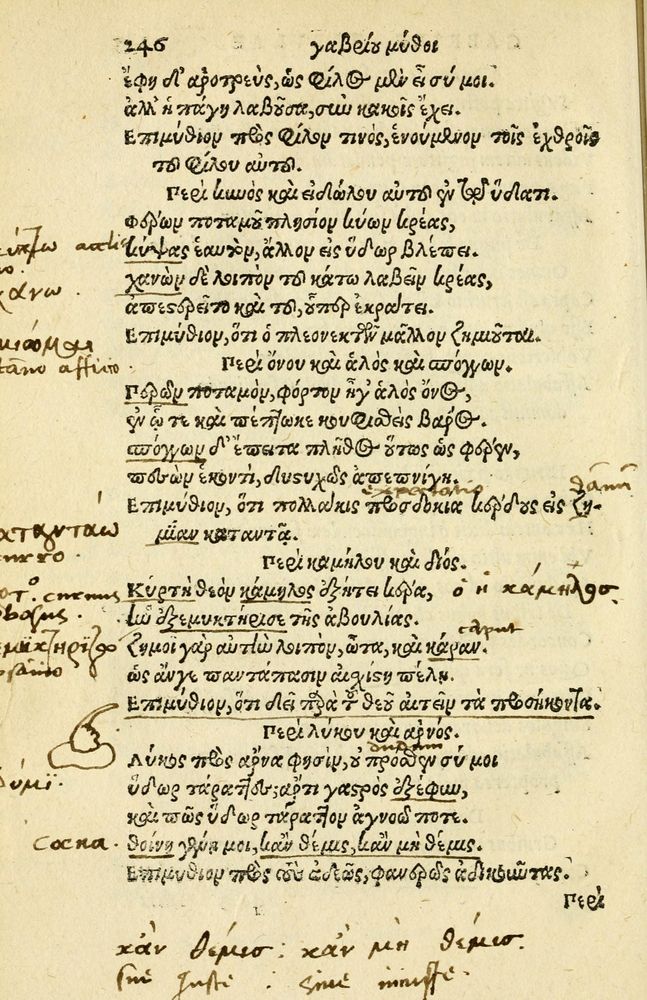 246 γαβρίου μύθοι
ἔφη δ' ἀροτρεὺς, ὡς φίλος μὲν εἶ σύ μοι.
ἀλλ' ἡ πάγη λαβοῦσα, σὺν κακοῖς ἔχει.
Επιμύθιον πρὸς φίλον τινὸς, ἑνούμενον τοῖς ἐχθροῖς
τοῦ φίλου αὐτοῦ.
Περὶ κυνὸς καὶ εἰδώλου αὐτοῦ ἐν τῷ ὕδατι.
Φέρων ποταμοῦ πλησίον κύων κρέας,
κύψας ἑαυτὸν, ἄλλον εἰς ὕδωρ βλέπει.
χανὼν δὲ λοιπὸν τὸ κάτω λαβεῖν κρέας,
ἀπεστερεῖτο καὶ τοῦ, ὅπερ ἐκράτει.
Επιμύθιον, ὅτι ὁ πλεονεκτῶν μᾶλλον ζημιοῦται.
Περὶ ὄνου καὶ ἁλὸς καὶ σπόγγων.
Περῶν ποταμὸν, φόρτον ἦγ' ἁλὸς ὄνος,
ἐν ᾧ τε καὶ πέπτωκε κουφισθεὶς βάρος.
σπόγγων δ' ἔπειτα πλῆθος οὕτως ὡς φέρων,
πεσὼν ἑκοντὶ, δυστυχῶς ἀπεπνίγη.
expectatio
Επιμύθιον, ὅτι πολλάκις προσδοκία κέρδους εἰς ζη-
μίαν καταντᾷ.
Περὶ καμήλου καὶ διός.
Κύρτη θεὸν κάμηλος ἐζήτει κέρα, ὁ ἡ κάμηλος.
ἣν ἐξεμυκτήρισε τῆς ἀβουλίας.
caput
ζημοῖ γὰρ αὐτὴν λοιπὸν, ὦτα, καὶ κάραν.
ὡς ἄνγε παντάπασιν αἰχίστη πέλῃ.
Επιμύθιον, ὅτι δεῖ παρὰ τοῦ θεοῦ αἰτεῖν τὰ προσήκοντα.
Περὶ λύκου καὶ ἀρνός.
Λύκος πρὸς ἄρνα φησὶν, οὐ πρόσθεν σύ μοι
ὕδωρ τάραττες; ἄρτι γαστρὸς ἐξέφυν,
καὶ πῶς ὕδωρ τάραττον ἀγνοῶ ποτε.
coena. θοίνη γένῃ μοι, κἂν θέμις, κἂν μὴ θέμις.
Επιμύθιον πρὸς τοὺς ἀδεῶς, φανερῶς ἀδικοῦντας.
Περὶ
κἂν θέμισ: κἂν μὴ θέμισ.
siue iuste: siue iniuste.